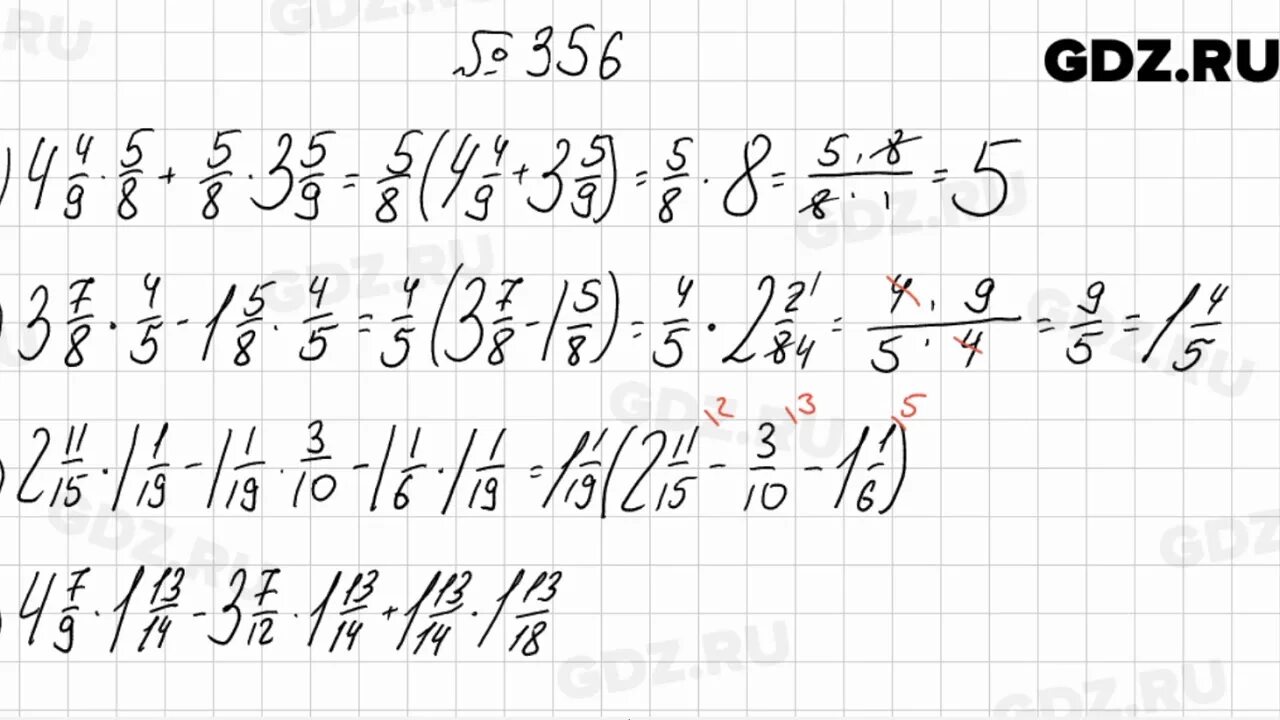 № 356
GDZ.RU
) 4 4/9 · 5/8 + 5/8 · 3 5/9 = 5/8 (4 4/9 + 3 5/9) = 5/8 · 8 = 5 · 8 / 8 · 1 = 5
) 3 7/8 · 4/5 - 1 5/8 · 4/5 = 4/5 (3 7/8 - 1 5/8) = 4/5 · 2 2 1 / 8 4 = 4 · 9 / 5 · 4 = 9/5 = 1 4/5
) 2 11/15 · 1 1/19 - 1 1/19 · 3/10 - 1 1/6 · 1 1/19 = 1 1/19 (2 11/15 \2 - 3/10 \3 - 1 1/6 \5)
) 4 7/9 · 1 13/14 - 3 7/12 · 1 13/14 + 1 13/14 · 1 13/18